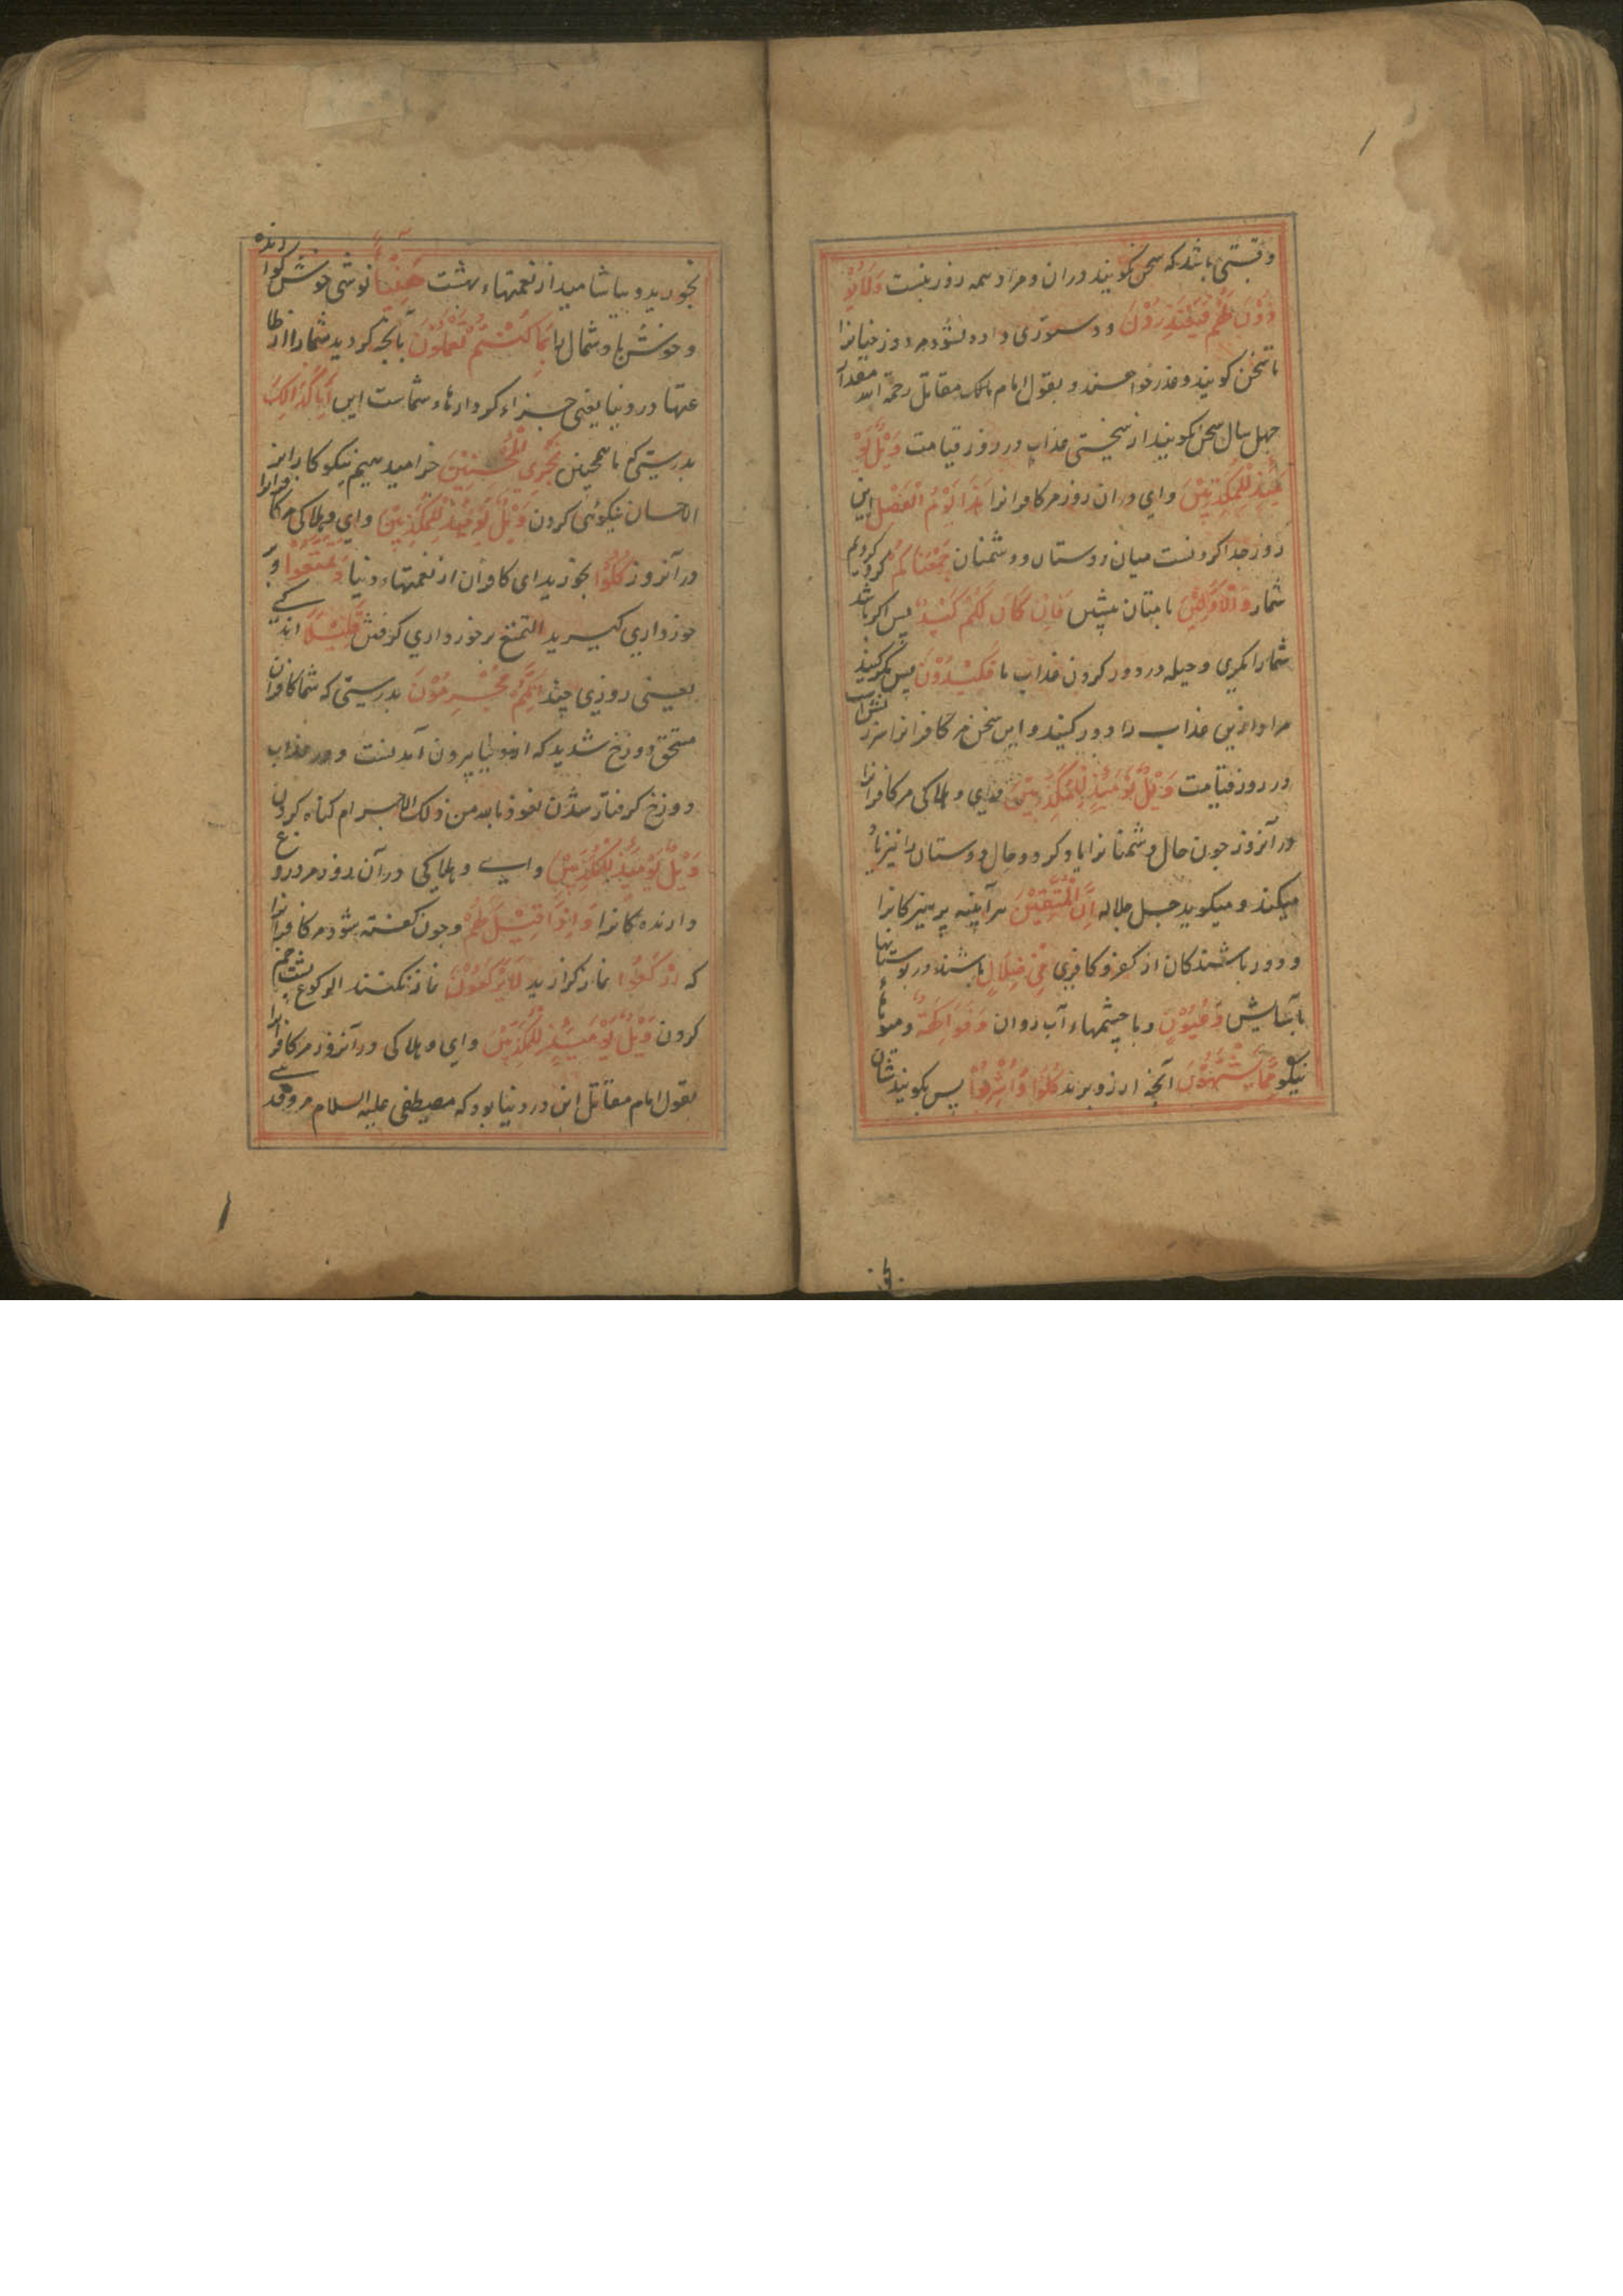 وقتی باشد که سخن نگویند دران و مراد همه روز نیست وَلَا يُؤْ
ذَنُ لَهُمْ فَيَعْتَذِرُوْنَ و دستوری داده نشود مر دوزخیانرا
تا سخن کویند و عذر خواهند و بقول امام مالک مقاتل رحمة الله مقدار
چهل سال سخن نکویند از سختی عذاب در روز قیامت وَيْلٌ يَوْ
مَئِذٍ لِلْمُكَذِّبِيْنَ وای دران روز مر کافرانرا هَذَا يَوْمُ الْفَصْلِ این
روز جدا کردنست میان دوستان و دشمنان جَمَعْنَاكُمْ کرد کردیم
شمار وَالْاَوَّلِيْنَ با متان پیشین فَاِنْ كَانَ لَكُمْ كَيْدٌ پس اکر باشد
شمارا مکری و حیله در دور کردن عذاب ما فَكِيْدُوْنَ پس مکر کنید
مرا و ازین عذاب را دور کنید و این سخن مر کافرانرا سرزنش است
در روز قیامت وَيْلٌ يَوْمَئِذٍ لِلْمُكَذِّبِيْنَ وای و هلاکی مر کافرانرا
در آنروز چون حال دشمنانرا یاد کرد و حال دوستان را نیز یاد
میکند و میکوید جل جلاله اِنَّ الْمُتَّقِيْنَ هر آینه پرهیزکانرا
و دور باشندکان از کفر و کافری فِيْ ظِلَالٍ باشند در بوستانها
بآسایش وَعُيُوْنٍ و با چشمهاء آب روان وَفَوَاكِهَ و میوهاء
نیکو مِمَّا يَشْتَهُوْنَ آنچه ارزو برند كُلُوْا وَاشْرَبُوْا پس بکویند شان
بخورید و بیاشامید از نعمتهاء بهشت هَنِيْئًا نوشی خوش کوارنده
و خوش با و شمال با بِمَا كُنْتُمْ تَعْمَلُوْنَ بآنچه کردید شمارا از طا
عتها در دنیا یعنی جزاء کردارهاء شماست این اِنَّا كَذَالِكَ
بدرستی که ما همچنین نَجْزِي الْمُحْسِنِيْنَ جزا میدهیم نیکوکارانرا
الاحسان نیکوئی کردن وَيْلٌ يَوْمَئِذٍ لِلْمُكَذِّبِيْنَ وای و هلاکی مر کافرانرا
در آنروز كُلُوْا بخورید ای کافران از نعمتهاء دنیا وَتَمَتَّعُوْا و بر
خورداری کیرید التمتع برخورداری کرفتن قَلِيْلًا اندکی
یعنی روزی چند اِنَّكُمْ مُجْرِمُوْنَ بدرستی که شما کافران
مستحق دوزخ شدید که از دنیا بیرون آمدنست و در عذاب
دوزخ کرفتار شدن نعوذ بالله من ذلک الاجرام کناه کردن
وَيْلٌ يَوْمَئِذٍ لِلْمُكَذِّبِيْنَ وای و هلاکی در آن روز مر دروغ
دارنده کانرا وَاِذَا قِيْلَ لَهُمْ و چون کفته شود مر کافرانرا
که ارْكَعُوْا نماز کزارید لَا يَرْكَعُوْنَ نماز نکنند الرکوع پشت خم
کردن وَيْلٌ يَوْمَئِذٍ لِلْمُكَذِّبِيْنَ وای و هلاکی در آنروز مر کافرانرا
بقول امام مقاتل این در دنیا بود که مصطفی علیه السلام مر وفد